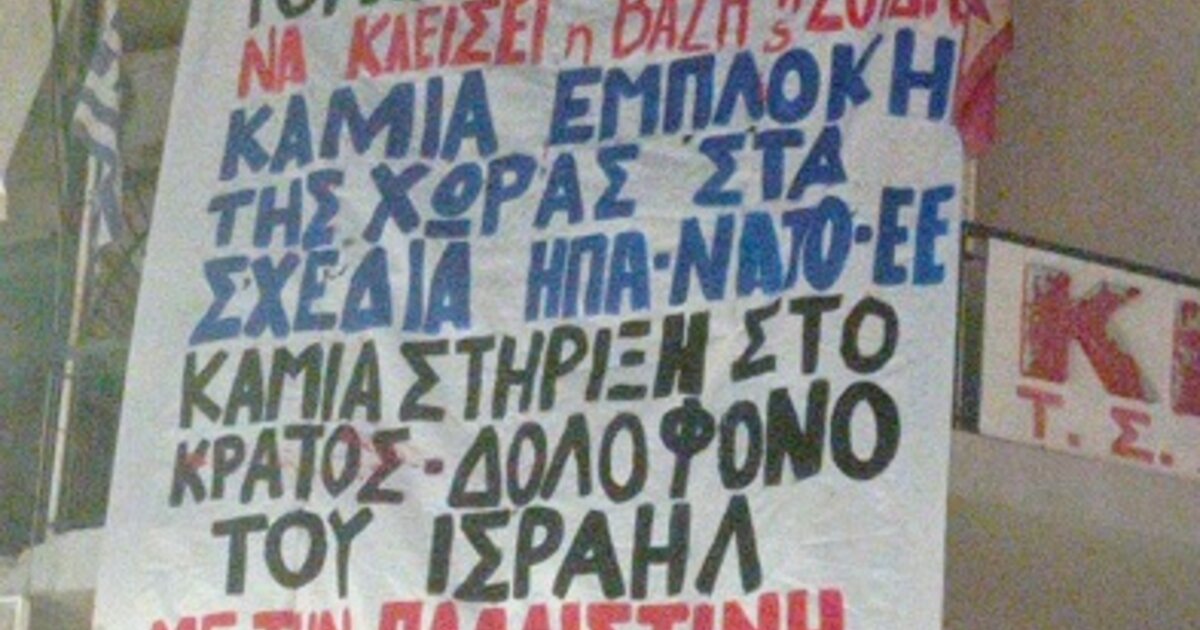 ΝΑ ΚΛΕΙΣΕΙ η ΒΑΣΗ της ΣΟΥΔΑΣ
ΚΑΜΙΑ ΕΜΠΛΟΚΗ
ΤΗΣ ΧΩΡΑΣ ΣΤΑ
ΣΧΕΔΙΑ ΗΠΑ-ΝΑΤΟ-ΕΕ
ΚΑΜΙΑ ΣΤΗΡΙΞΗ ΣΤΟ
ΚΡΑΤΟΣ-ΔΟΛΟΦΟΝΟ
ΤΟΥ ΙΣΡΑΗΛ
ΜΕ ΤΗΝ ΠΑΛΑΙΣΤΙΝΗ
Τ. Σ.